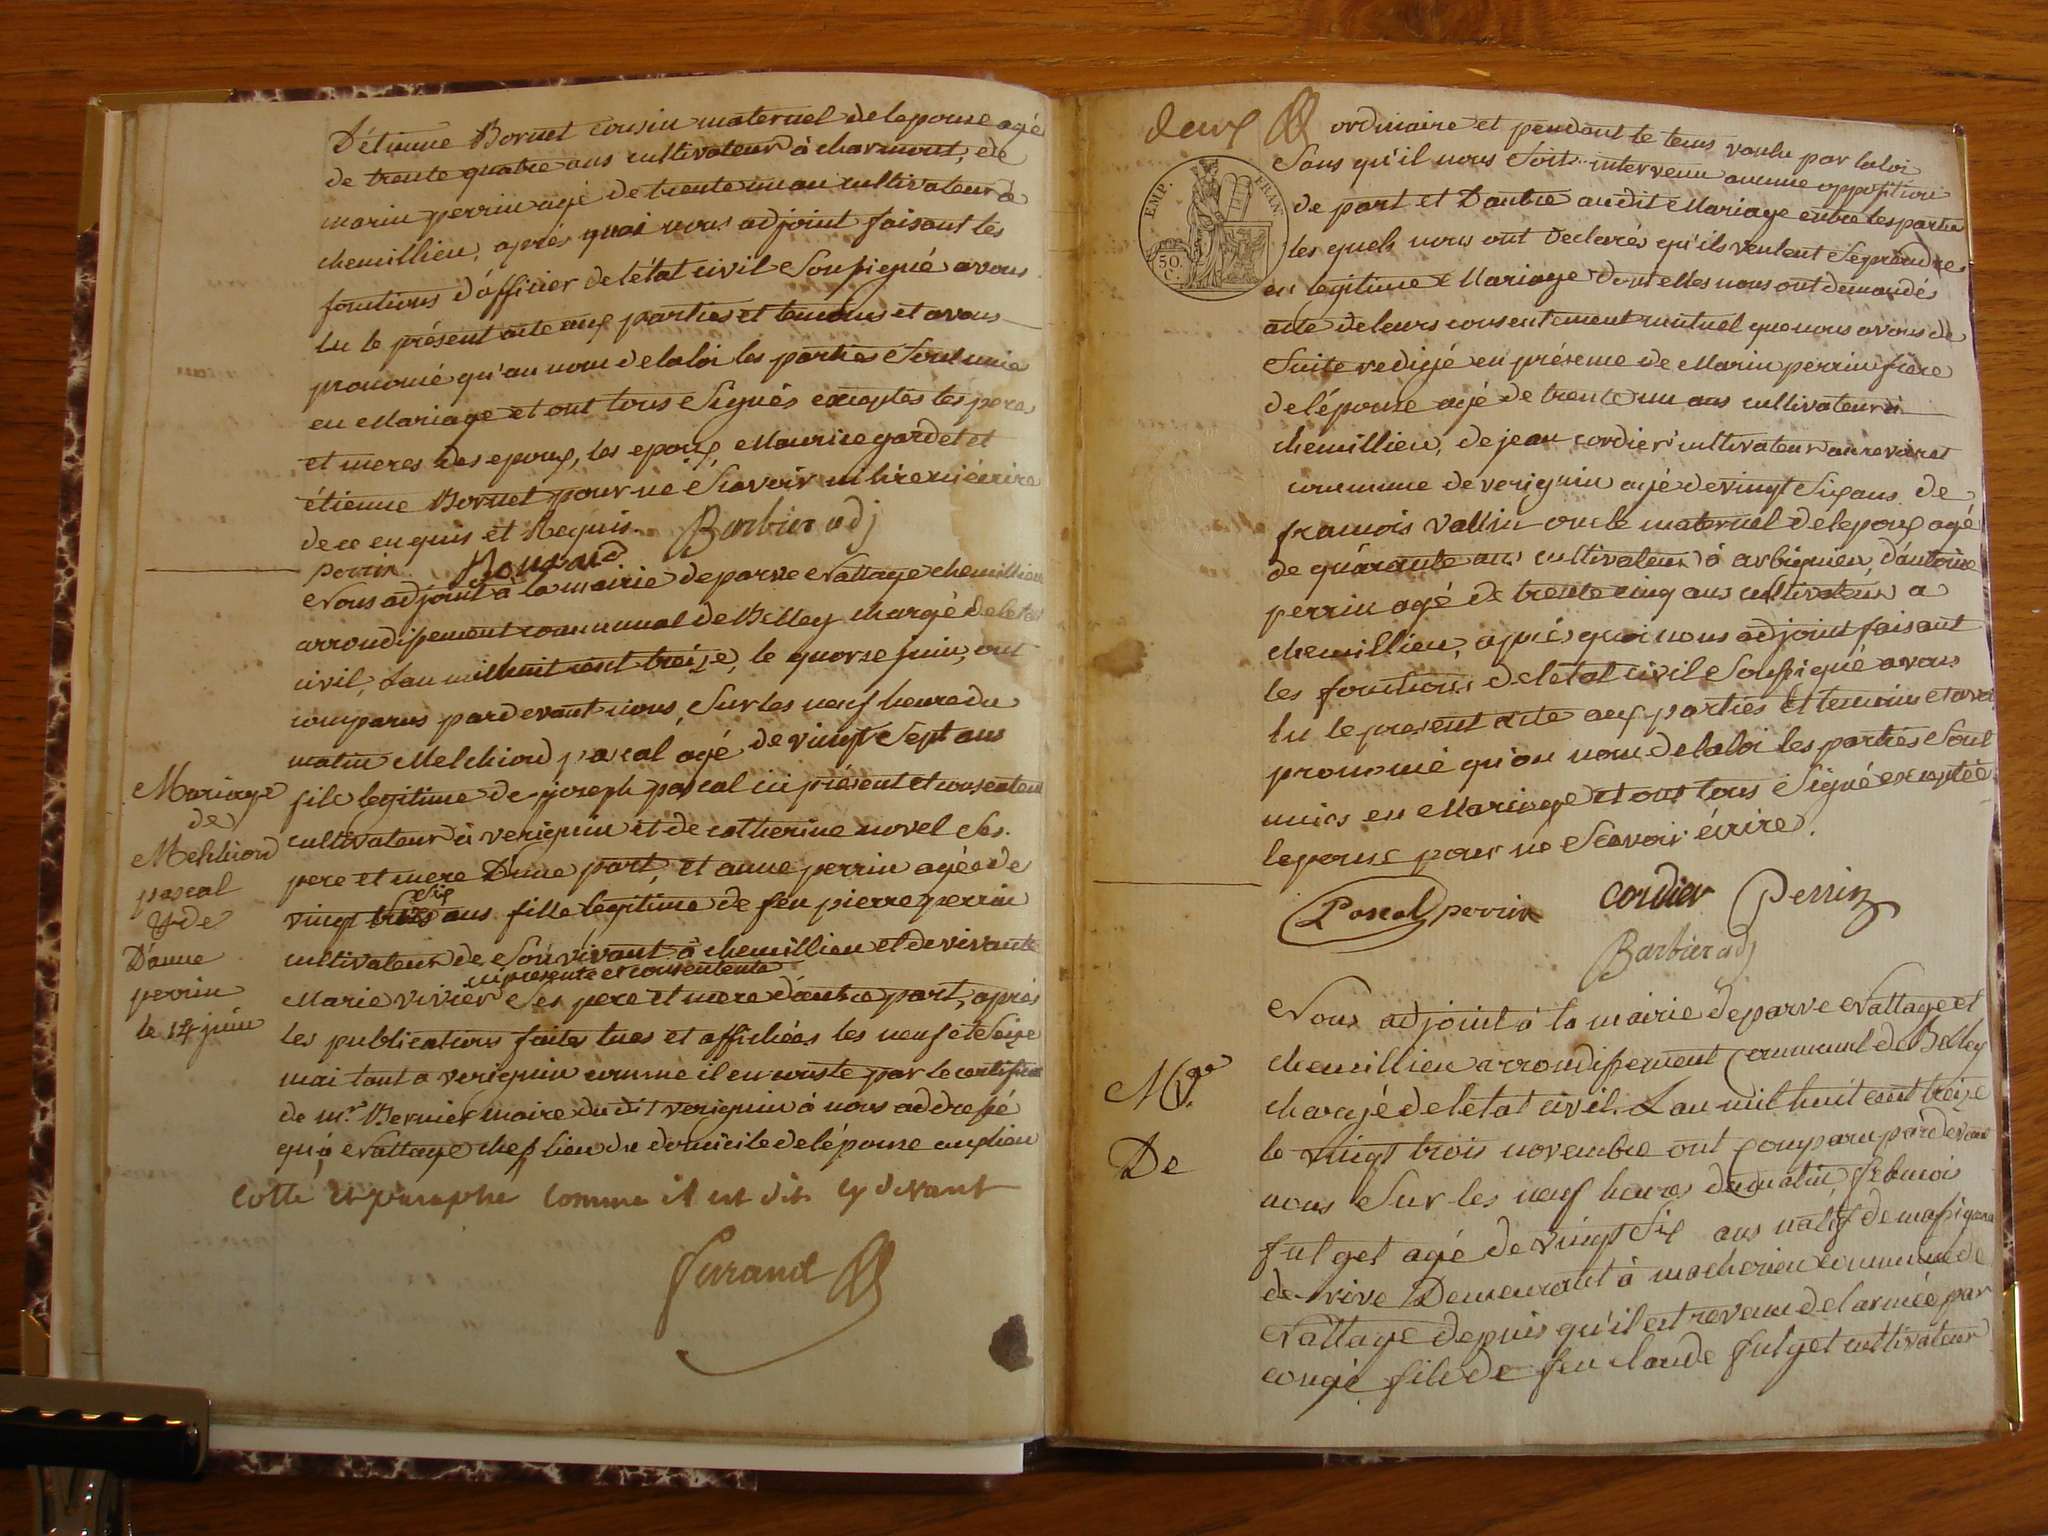 D'étienne Bornet cousin maternel de lepouse agé
de trente quatre ans cultivateur à charmont, et de
marin perrin agé de trente un an cultivateur à
chemillieu, aprés quoi nous adjoint faisant les
fonctions d'officier de létat civil Soussigné avons
lu le présent acte aux parties et temoins et avons
prononcé qu'au nom de la loi les parties Sont unie
en Mariage et ont tous Signés exceptés les peres
et meres des epoux, les epoux, Maurice gardet et
étienne Bornet pour ne Scavoir ni lire ni écrire
de ce enquis et Requis. Barbier adj
perrin
Nous adjoint à la mairie de parve Nattage chemillieu
arrondissement communal de Belley chargé de letat
civil, Lan mil huit cent treize, le quorze juin, ont
comparus pardevant nous, Sur les neuf heure du
matin Melchiord pascal agé de vingt Sept ans
fils legitime de joseph pascal ici présent et consentent
cultivateur à verignin et de catherine novel Ses
pere et mere D'une part, et anne perrin agée de
six
vingt trois ans fille legitime de feu pierre perrin
cultivateur de Son vivant à chemillieu et de vivante
ici presente et consentente
Marie vivier Ses pere et mere d'autre part, aprés
les publications faites lues et affichées les neuf et Seize
mai tant a verignin comme il en conste par le certificat
de mr. Bernier maire du dit verignin à nous addressé
qu'à Nattage chef lieu du domicile de lépouse au lieu
Mariage
de
Melchiord
pascal
& de
D'anne
perrin
le 14 juin
Cotté et paraphé comme il est dit cy devant
Jurand
deux
EMP. FRAN.
50
C.
ordinaire et pendant le tems voulu par la loi
Sans qu'il nous Soit intervenu aucune opposition
de part et D'autre au dit Mariage entre les parties
les quels nous ont declarés qu'ils veulent Se prendre
en legitime Mariage dont elles nous ont demandés
acte de leurs consentement mutuel que nous avons de
Suite redigé en présence de Marin perrin frere
de lépouse agé de trente un ans cultivateur à
chemillieu, de jean cordier cultivateur au revoiret
commune de verignin agé de vingt Six ans, de
francois vallin oncle maternel de lepoux agé
de quarante ans cultivateur à arbignieu, d'antoine
perrin agé de trente cinq ans cultivateur a
chemillieu, aprés quoi nous adjoint faisant
les fonctions de létat civil Soussigné avons
lu le present acte aux parties et temoins et avons
prononcé qu'au nom de la loi les parties Sont
unies en Mariage et ont tous Signé exceptée
lepouse pour ne Scavoir écrire.
Pascal perrin cordier Perrin
Barbier adj
Nous adjoint à la mairie de parve Nattage et
chemillieu arrondissement communal de Belley
chargé de létat civil. Lan mil huit cent treize
le vingt trois novembre ont comparu pardevant
nous Sur les neuf heures du matin francois
fulget agé de vingt Six ans natif de massignieu
de rive Demeurant à macherieu commune de
Nattage depuis qu'il est revenu de l'armée par
congé fils de feu claude fulget cultivateur
M.ge
De